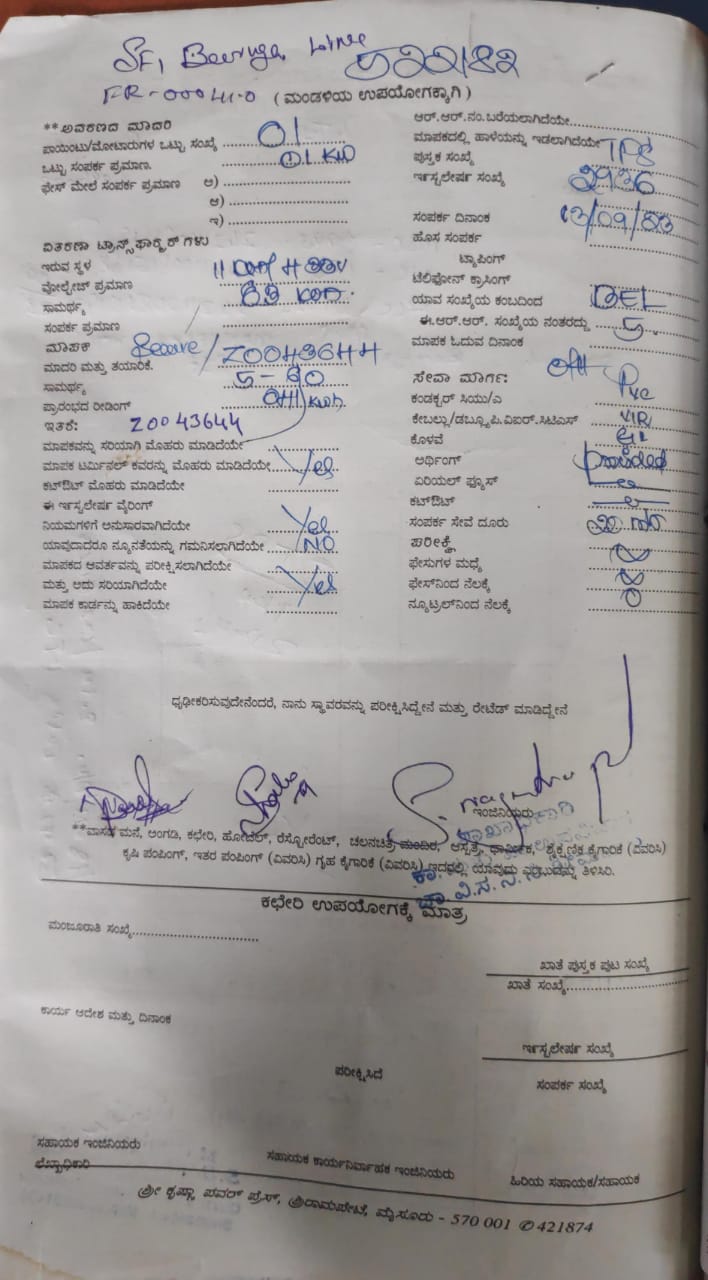 522182
FR-000410 (ಮಂಡಳಿಯ ಉಪಯೋಗಕ್ಕಾಗಿ)
**ಅವಕರಣದ ಮಾದರಿ
ಪಾಯಿಂಟು/ಮೋಟಾರುಗಳ ಒಟ್ಟು ಸಂಖ್ಯೆ 01
ಒಟ್ಟು ಸಂಪರ್ಕ ಪ್ರಮಾಣ. 01 KW
ಫೇಸ್ ಮೇಲೆ ಸಂಪರ್ಕ ಪ್ರಮಾಣ ಅ)
ಆ)
ಇ)
ವಿತರಣಾ ಟ್ರಾನ್ಸ್‌ಫಾರ್ಮರ್‌ಗಳು
ಇರುವ ಸ್ಥಳ
ವೋಲ್ಟೇಜ್ ಪ್ರಮಾಣ
ಸಾಮರ್ಥ್ಯ 63
ಸಂಪರ್ಕ ಪ್ರಮಾಣ
ಮಾಪಕ
ಮಾದರಿ ಮತ್ತು ತಯಾರಿಕೆ. Z0043644
ಸಾಮರ್ಥ್ಯ 5-60
ಪ್ರಾರಂಭದ ರೀಡಿಂಗ್
ಇತಕೆ: Z0043644
ಮಾಪಕವನ್ನು ಸರಿಯಾಗಿ ಮೊಹರು ಮಾಡಿದೆಯೇ
ಮಾಪಕ ಟರ್ಮಿನಲ್ ಕವರನ್ನು ಮೊಹರು ಮಾಡಿದೆಯೇ Yes
ಕಟ್‌ಔಟ್ ಮೊಹರು ಮಾಡಿದೆಯೇ
ಈ ಇನ್‌ಸ್ಟಲೇಷನ್ ವೈರಿಂಗ್
ನಿಯಮಗಳಿಗೆ ಅನುಸಾರವಾಗಿದೆಯೇ Yes
ಯಾವುದಾದರೂ ನ್ಯೂನತೆಯನ್ನು ಗಮನಿಸಲಾಗಿದೆಯೇ NO
ಮಾಪಕದ ಆವರ್ತವನ್ನು ಪರೀಕ್ಷಿಸಲಾಗಿದೆಯೇ
ಮತ್ತು ಅದು ಸರಿಯಾಗಿದೆಯೇ Yes
ಮಾಪಕ ಕಾರ್ಡನ್ನು ಹಾಕಿದೆಯೇ
ಆರ್.ಆರ್.ನಂ.ಬರೆಯಲಾಗಿದೆಯೇ
ಮಾಪಕದಲ್ಲಿ ಹಾಳೆಯನ್ನು ಇಡಲಾಗಿದೆಯೇ
ಪುಸ್ತಕ ಸಂಖ್ಯೆ
ಇನ್‌ಸ್ಟಲೇಷನ್ ಸಂಖ್ಯೆ 2936
ಸಂಪರ್ಕ ದಿನಾಂಕ
ಹೊಸ ಸಂಪರ್ಕ
ಟ್ಯಾಪಿಂಗ್
ಟೆಲಿಫೋನ್ ಕ್ರಾಸಿಂಗ್
ಯಾವ ಸಂಖ್ಯೆಯ ಕಂಬದಿಂದ DEL
ಈ.ಆರ್.ಆರ್. ಸಂಖ್ಯೆಯ ನಂತರದ್ದು 5.
ಮಾಪಕ ಓದುವ ದಿನಾಂಕ
ಸೇವಾ ಮಾರ್ಗ: OH
ಕಂಡಕ್ಟರ್ ಸಿಯು/ಎ Pvc
ಕೇಬಲ್ಲು/ಡಬ್ಲ್ಯೂಪಿ.ವಿಐಆರ್.ಸಿಟಿಎಸ್ VIR
ಕೊಳವೆ GI
ಅರ್ಥಿಂಗ್ provided
ಏರಿಯಲ್ ಫ್ಯೂಸ್
ಕಟ್‌ಔಟ್
ಸಂಪರ್ಕ ಸೇವೆ ದೂರು
ಪರೀಕ್ಷೆ
ಫೇಸುಗಳ ಮಧ್ಯೆ
ಫೇಸ್‌ನಿಂದ ನೆಲಕ್ಕೆ
ನ್ಯೂಟ್ರಲ್‌ನಿಂದ ನೆಲಕ್ಕೆ
ಧೃಢೀಕರಿಸುವುದೇನೆಂದರೆ, ನಾನು ಸ್ಥಾವರವನ್ನು ಪರೀಕ್ಷಿಸಿದ್ದೇನೆ ಮತ್ತು ರೇಟೆಡ್ ಮಾಡಿದ್ದೇನೆ
ಇಂಜಿನಿಯರು
**ವಾಸದ ಮನೆ, ಅಂಗಡಿ, ಕಛೇರಿ, ಹೋಟೆಲ್, ರೆಸ್ಟೋರೆಂಟ್, ಚಲನಚಿತ್ರ ಮಂದಿರ, ಆಸ್ಪತ್ರೆ, ಧಾರ್ಮಿಕ, ಶೈಕ್ಷಣಿಕ ಕೈಗಾರಿಕೆ (ವಿವರಿಸಿ)
ಕೃಷಿ ಪಂಪಿಂಗ್, ಇತರ ಪಂಪಿಂಗ್ (ವಿವರಿಸಿ) ಗೃಹ ಕೈಗಾರಿಕೆ (ವಿವರಿಸಿ) ಇದರಲ್ಲಿ ಯಾವುದು ಎಂಬುದನ್ನು ತಿಳಿಸಿರಿ.
ಕಛೇರಿ ಉಪಯೋಗಕ್ಕೆ ಮಾತ್ರ
ಮಂಜೂರಾತಿ ಸಂಖ್ಯೆ
ಖಾತೆ ಪುಸ್ತಕ ಪುಟ ಸಂಖ್ಯೆ
ಖಾತೆ ಸಂಖ್ಯೆ
ಕಾರ್ಯ ಆದೇಶ ಮತ್ತು ದಿನಾಂಕ
ಇನ್‌ಸ್ಟಲೇಷನ್ ಸಂಖ್ಯೆ
ಪರೀಕ್ಷಿಸಿದೆ
ಸಂಪರ್ಕ ಸಂಖ್ಯೆ
ಸಹಾಯಕ ಇಂಜಿನಿಯರು
ಲೆಖ್ಖಾಧಿಕಾರಿ
ಸಹಾಯಕ ಕಾರ್ಯನಿರ್ವಾಹಕ ಇಂಜಿನಿಯರು
ಹಿರಿಯ ಸಹಾಯಕ/ಸಹಾಯಕ
ಶ್ರೀ ಕೃಷ್ಣಾ ಪವರ್ ಪ್ರೆಸ್, ಶ್ರೀರಾಮಪೇಟೆ, ಮೈಸೂರು - 570 001 ✆ 421874